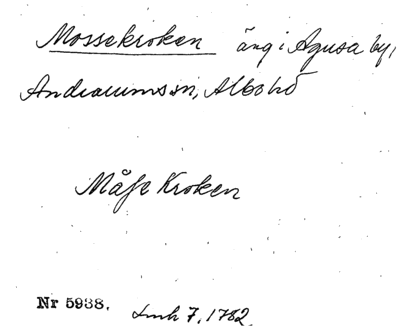 Mossekroken äng i Agusa by,
Andrarums sn, Albo hd
Måſse Kroken
Nr 5938. Lmk 7, 1782.